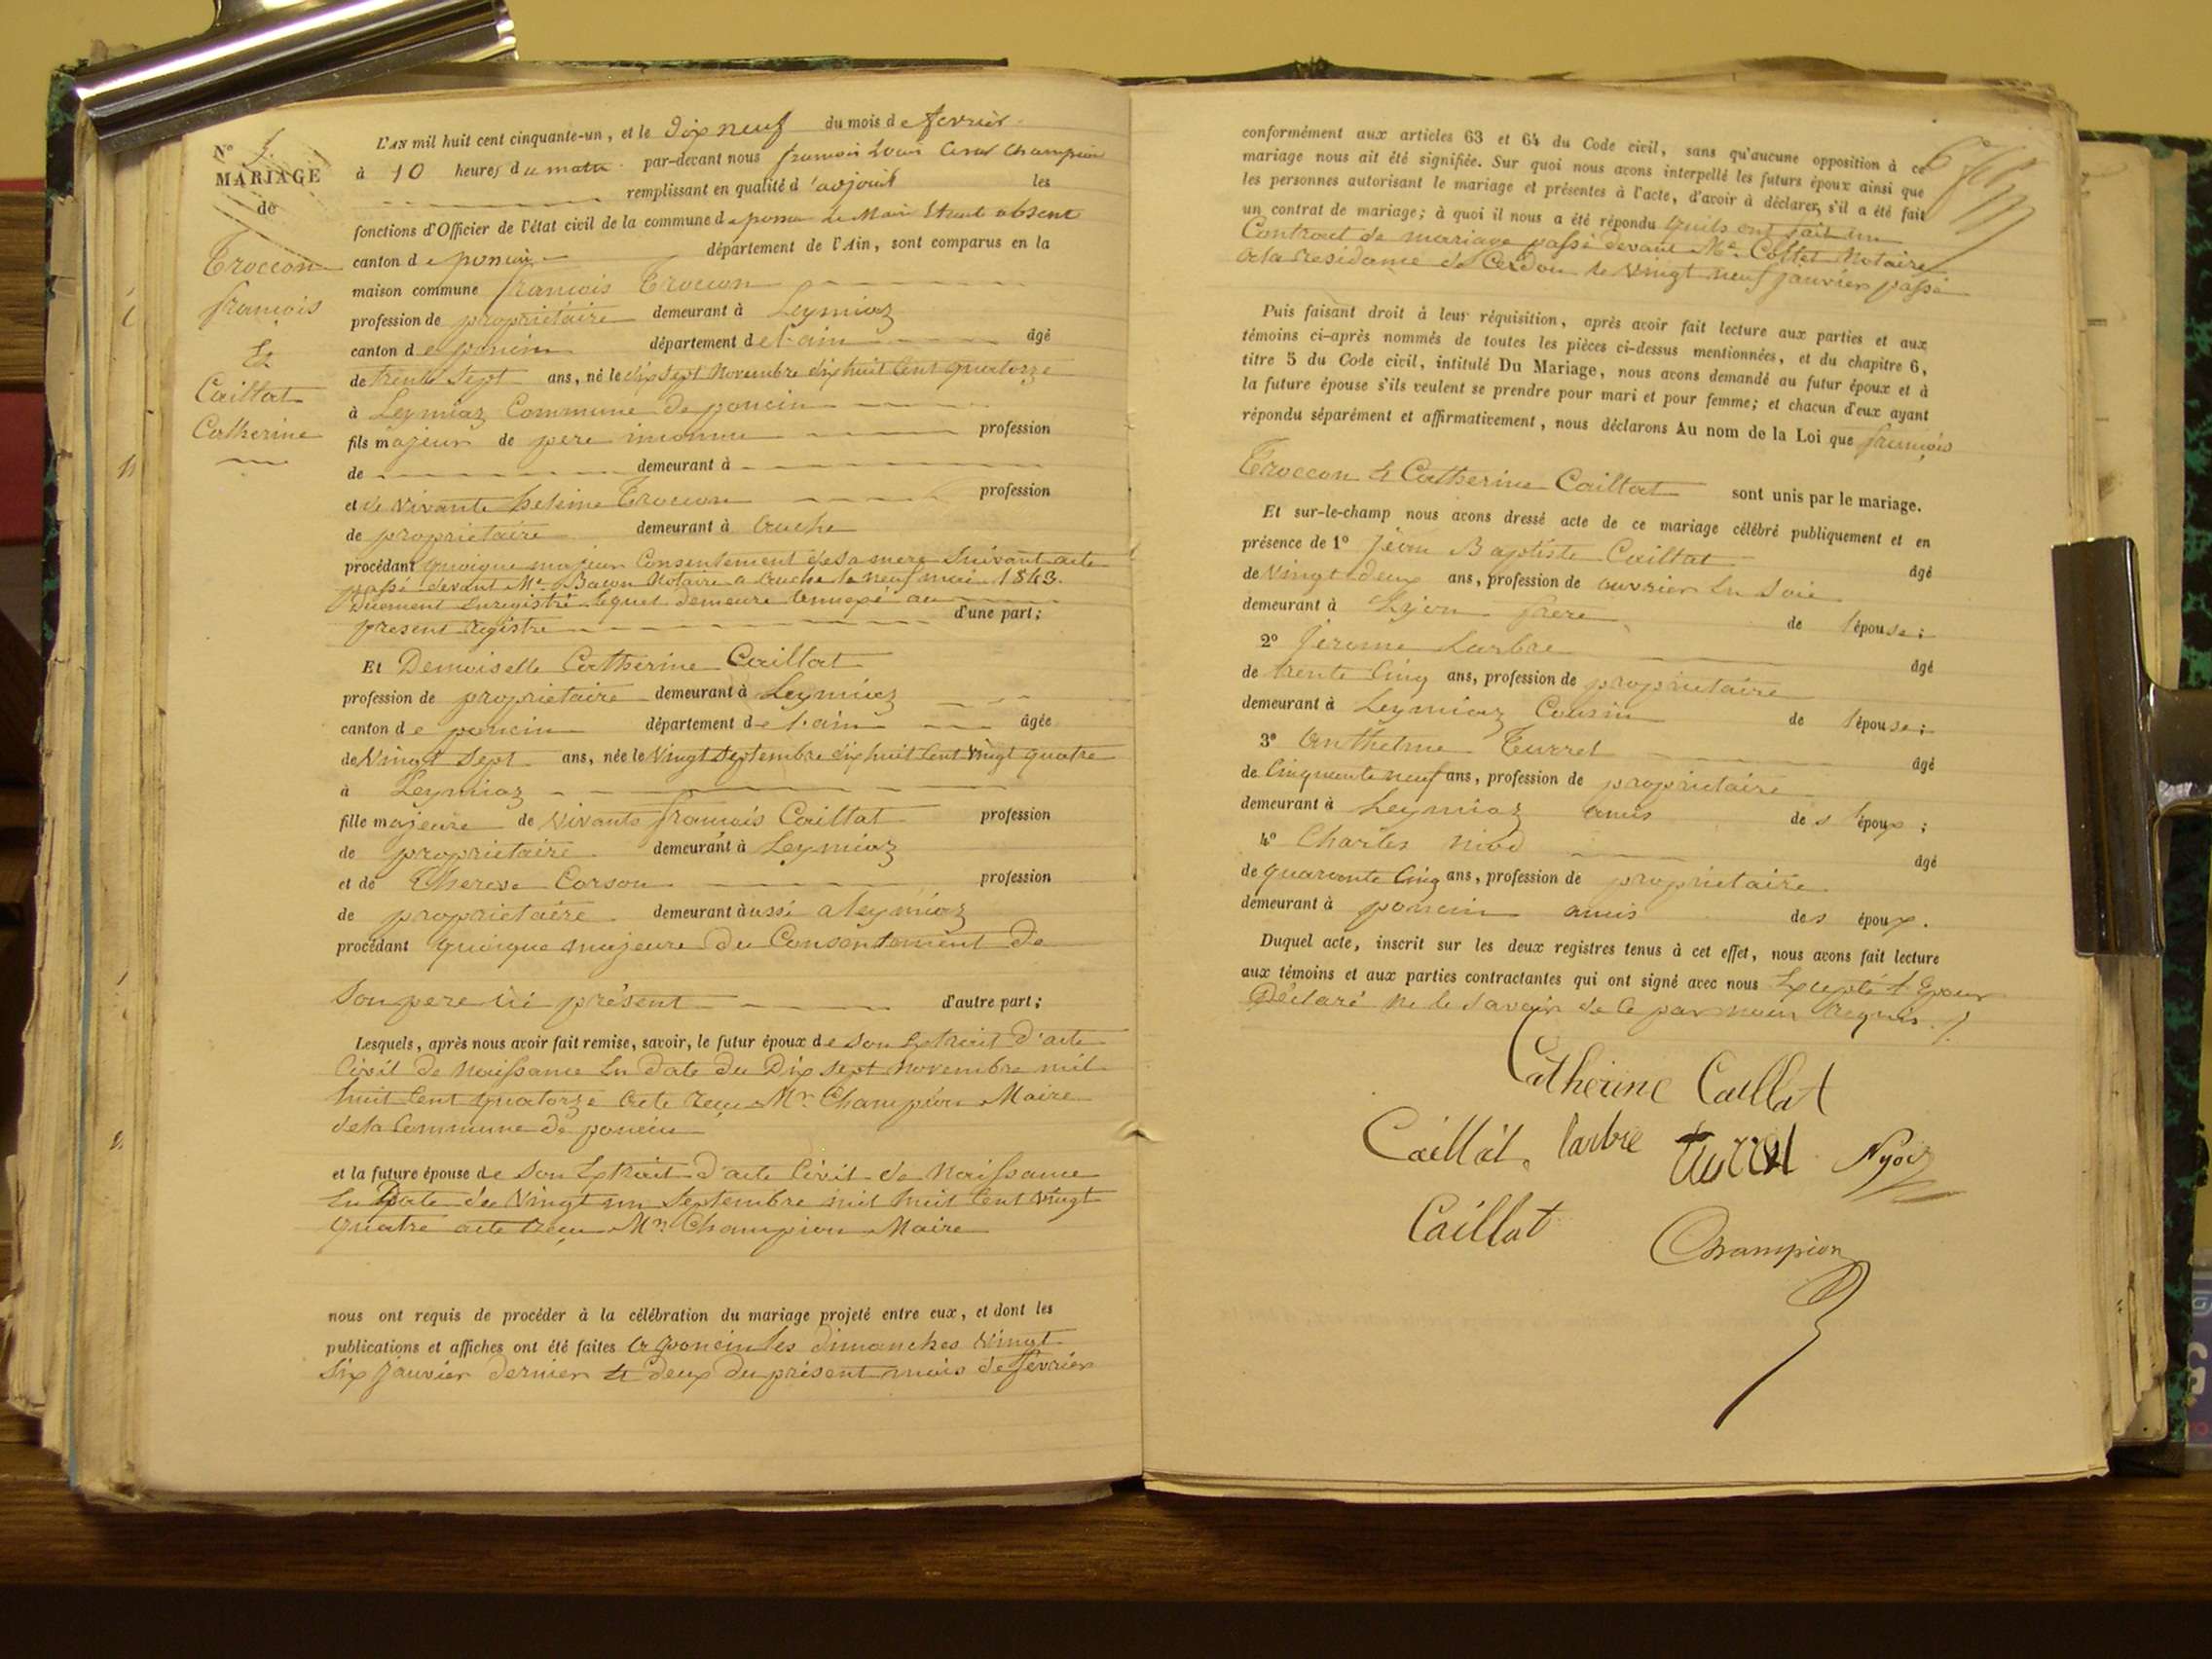 N° 5.
MARIAGE
de
Troccon
françois
Et
Caillat
Catherine
L'AN mil huit cent cinquante-un, et le Dix neuf du mois de fevrier
à 10 heures du matin par-devant nous françois Louis Champion
remplissant en qualité d'adjoint les
fonctions d'Officier de l'état civil de la commune de poncin le Maire Etant absent
canton de poncin département de l'Ain, sont comparus en la
maison commune françois Troccon
profession de propriétaire demeurant à Leymiaz
canton de poncin département de l'ain âgé
de trente Sept ans, né le dix Sept Novembre dix huit Cent quatorze
à Leymiaz Commune de poncin
fils majeur de pere inconnu profession
de demeurant à
et de vivante Troccon profession
de propriétaire demeurant à
procédant quoique majeur Consentement de Sa mere Suivant acte
passé devant Me Notaire a le neuf 1843.
Duement Enregistré lequel demeure annexé au
present registre d'une part;
Et Demoiselle Catherine Caillat
profession de propriétaire demeurant à Leymiaz
canton de poncin département de l'ain âgée
de Vingt Sept ans, née le Vingt Septembre dix huit Cent Vingt quatre
à Leymiaz
fille majeure de vivants françois Caillat profession
de propriétaire demeurant à Leymiaz
et de Therese Corson profession
de propriétaire demeurant àussi a leymiaz
procédant quoique majeure du Consentement de
Son pere ici présent d'autre part;
Lesquels, après nous avoir fait remise, savoir, le futur époux de Son Extrait d'acte
Civil de Naissance En date du Dix Sept Novembre mil
huit Cent quatorze acte reçu Mr Champion Maire
de la Commune de poncin
et la future épouse de Son Extrait d'acte Civil de Naissance
En Date du Vingt un Septembre mil huit Cent Vingt
quatre acte reçu Mr Champion Maire
nous ont requis de procéder à la célébration du mariage projeté entre eux, et dont les
publications et affiches ont été faites a poncin les dimanches Vingt
Six Janvier dernier Et deux du présent mois de fevrier
conformément aux articles 63 et 64 du Code civil, sans qu'aucune opposition à ce
mariage nous ait été signifiée. Sur quoi nous avons interpellé les futurs époux ainsi que
les personnes autorisant le mariage et présentes à l'acte, d'avoir à déclarer, s'il a été fait
un contrat de mariage; à quoi il nous a été répondu quils ont fait un
Contrat de mariage passé devant Me Collet Notaire
a la residance de Cerdon le Vingt neuf janvier passé
Puis faisant droit à leur réquisition, après avoir fait lecture aux parties et aux
témoins ci-après nommés de toutes les pièces ci-dessus mentionnées, et du chapitre 6,
titre 5 du Code civil, intitulé Du Mariage, nous avons demandé au futur époux et à
la future épouse s'ils veulent se prendre pour mari et pour femme; et chacun d'eux ayant
répondu séparément et affirmativement, nous déclarons Au nom de la Loi que françois
Troccon Et Catherine Caillat sont unis par le mariage.
Et sur-le-champ nous avons dressé acte de ce mariage célébré publiquement et en
présence de 1° Jean Baptiste Caillat âgé
de Vingt deux ans, profession de ouvrier En Soie
demeurant à Lyon frere de l'épouse;
2° Jerome Larbre âgé
de trente Cinq ans, profession de propriétaire
demeurant à Leymiaz Cousin de l'épouse;
3° Anthelme Turrel âgé
de Cinquante neuf ans, profession de propriétaire
demeurant à Leymiaz amis des époux;
4° Charles Niod âgé
de quarante Cinq ans, profession de propriétaire
demeurant à poncin amis des époux.
Duquel acte, inscrit sur les deux registres tenus à cet effet, nous avons fait lecture
aux témoins et aux parties contractantes qui ont signé avec nous Excepté l'Epoux
Déclaré ne le Savoir de Ce par nous requis ./.
Catherine Caillat
Caillat larbre turrel
Caillat Champion